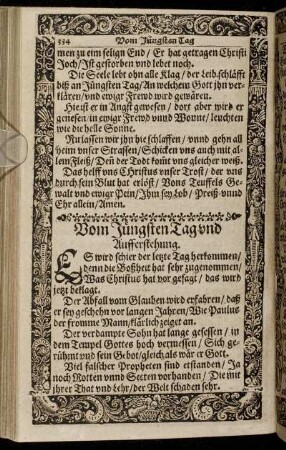 554 Vom Jüngsten Tag
men zu eim selign End / Er hat getragen Christi
Joch / Ist gestorben vnd lebet noch.
Die Seele lebt ohn alle Klag / der leib schläfft
biß an Jüngsten Tag / An welchem Gott jhn ver-
klären / vnd ewigr Frewd wird gewären.
Hie ist er in Angst gewesen / dort aber wird er
genesen / in ewigr Frewd vnnd Wonne / leuchten
wie die helle Sonne.
Nu lassen wir jhn hie schlaffen / vnnd gehn all
heim vnser Strassen / Schicken vns auch mit al-
lem Fleiß / Deñ der Todt kömt vns gleicher weiß.
Das helff vns Christus vnser Trost / der vns
durch sein Blut hat erlöst / Vons Teuffels Ge-
walt vnd ewiger Pein / Ihm sey Lob / Preiß vnnd
Ehr allein / Amen.
Vom Jüngsten Tag vnd
Aufferstehung.
ES wird schier der letzte Tag herkommen /
denn die Boßheit hat sehr zugenommen /
Was Christus hat vor gesagt / das wird
jetzt beklagt.
Der Abfall vom Glauben wird erfahren / daß
er sey geschehn vor langen Jahren / Wie Paulus
der fromme Mann / klärlich zeiget an.
Der verdampte Sohn hat lange gesessen / in
dem Tempel Gottes hoch vermessen / Sich ge-
rühmt vnd sein Gebot / gleich als wär er Gott.
Viel falscher Propheten sind erstanden / Ja
noch Rotten vnnd Secten vorhanden / Die mit
jhrer That vnd Lehr / der Welt schaden sehr.